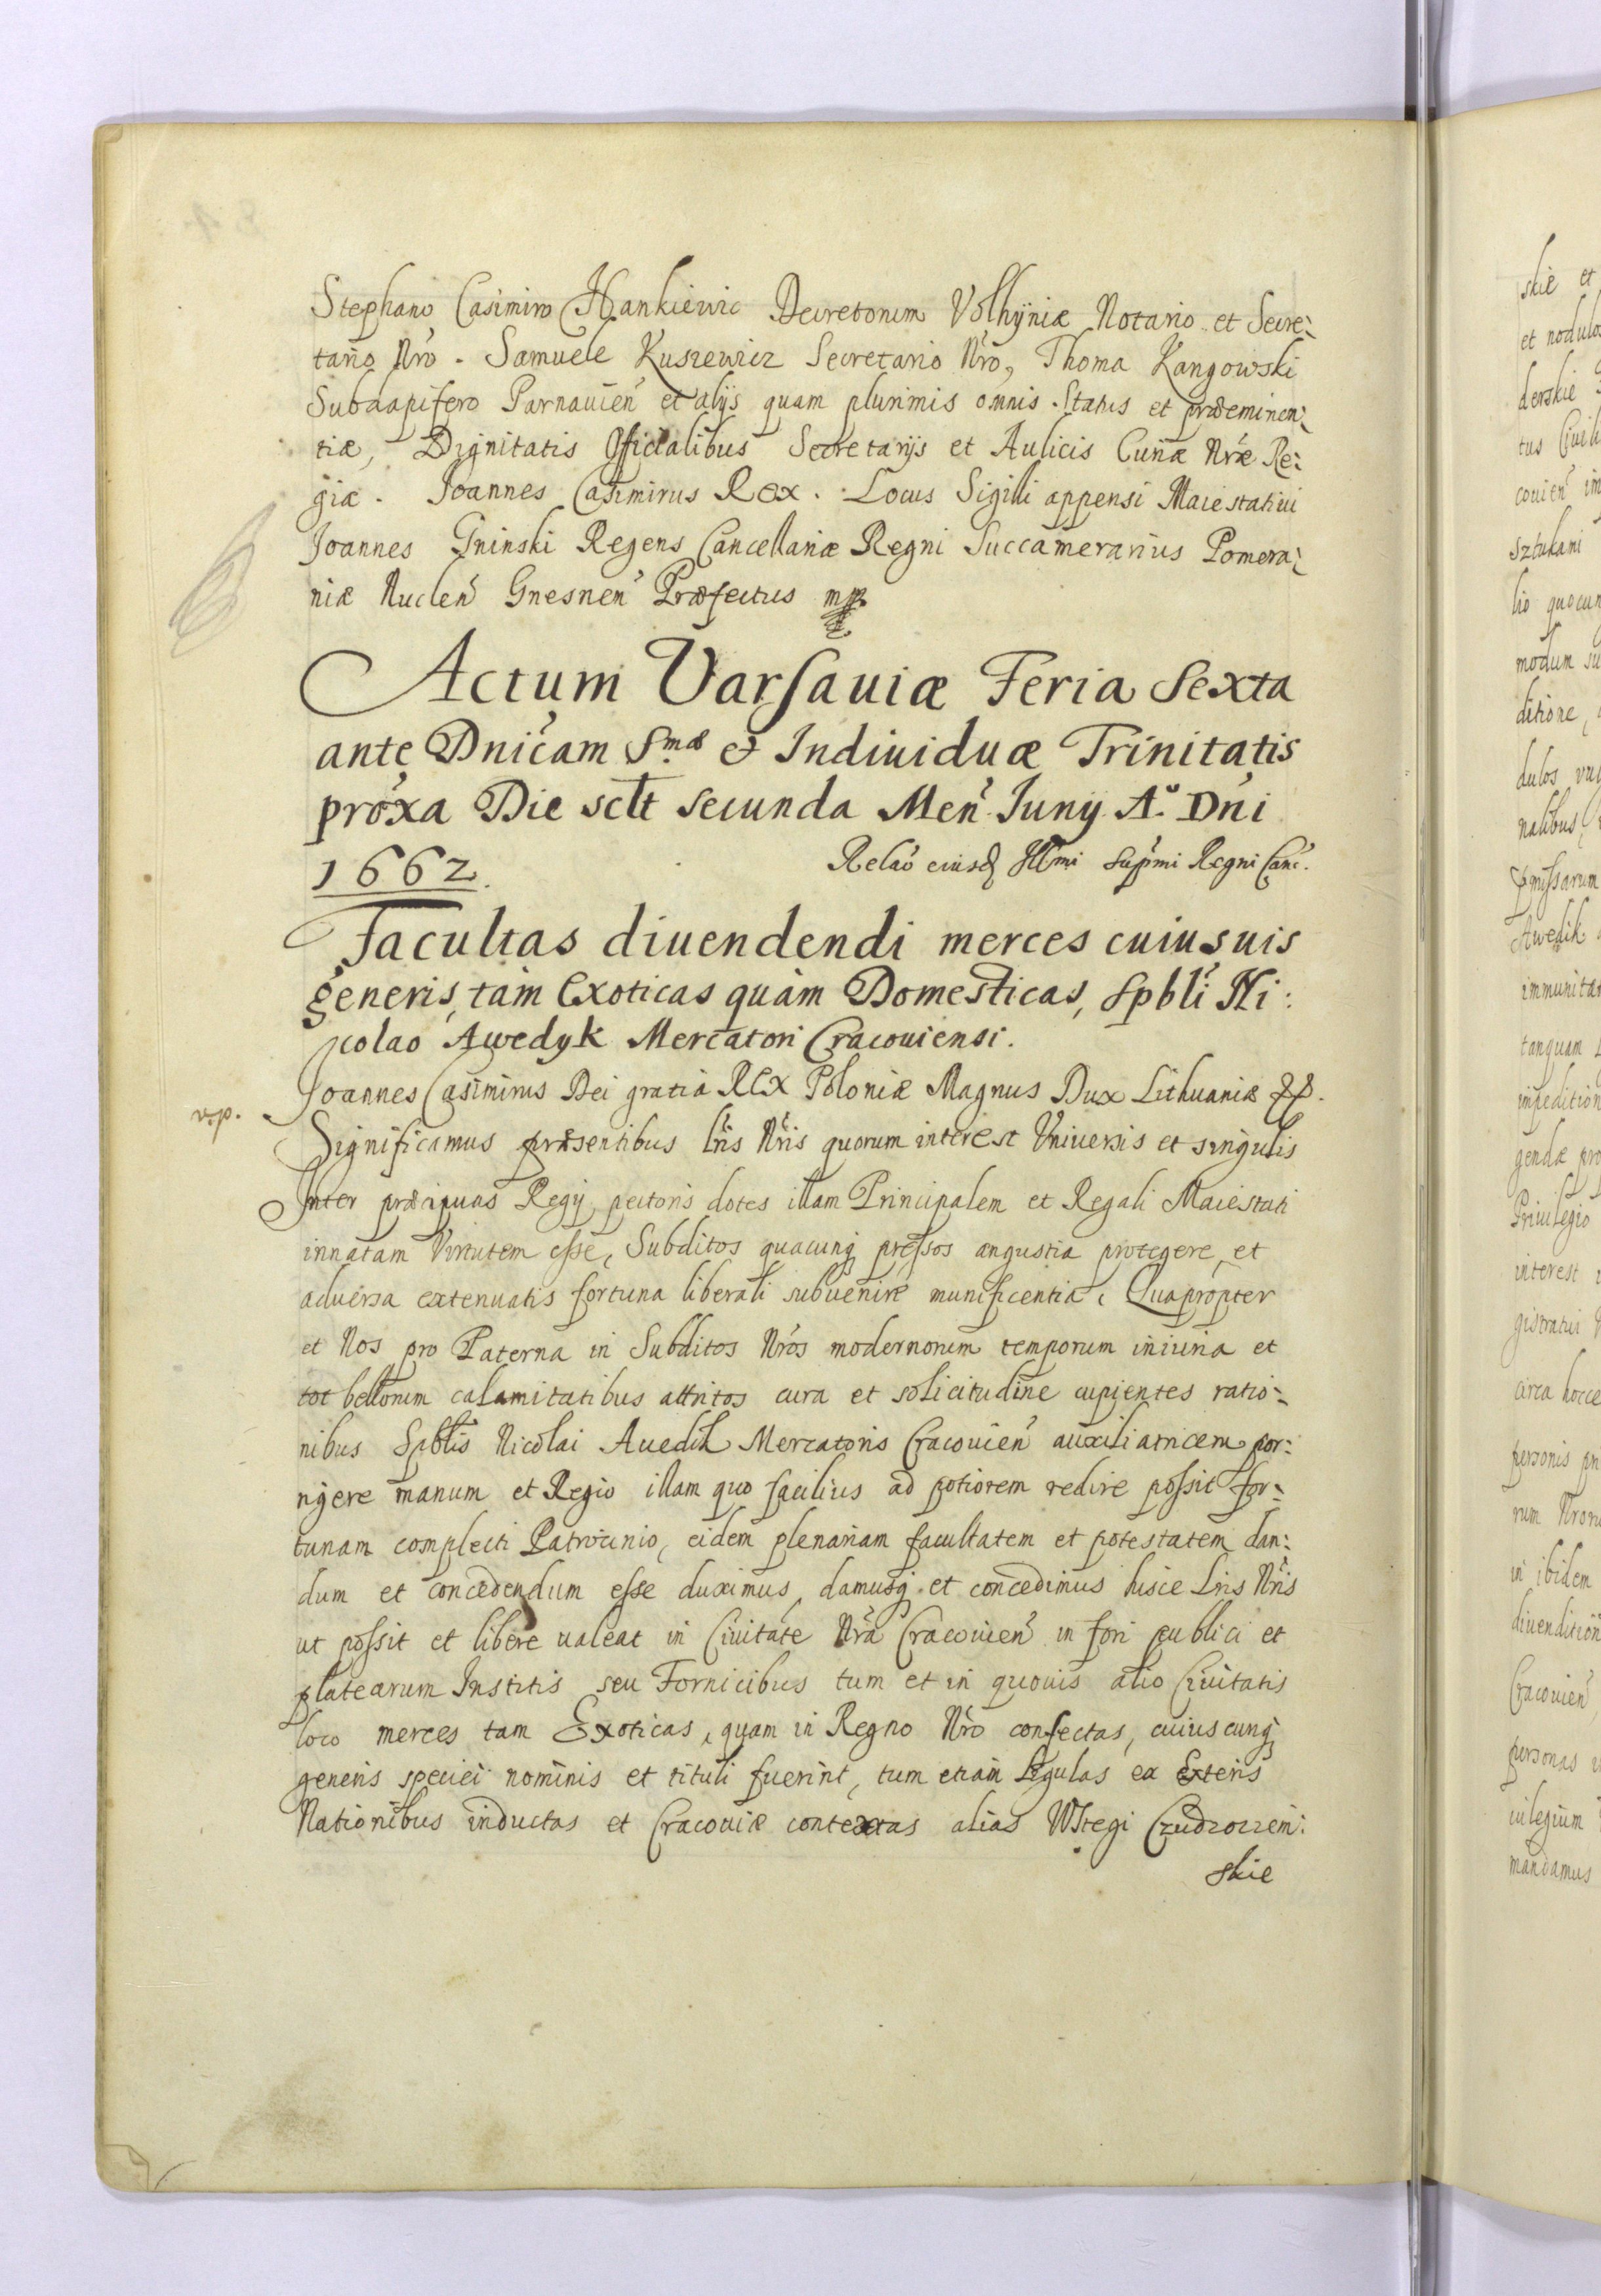 Stephano Casimiro Hankiewic Decretorum Volhÿniæ Notario et Secre:
tario Nr̃o. Samuele Kuszewicz Secretario Nr̃o, Thoma Kangowski
Subdapifero Parnauien̄ et alÿs quam plurimis omnis Status et præeminen:
tiæ, Dignitatis Officialibus Secretarÿs et Aulicis Curiæ Nr̃æ Re:
giæ. Joannes Casimirus Rex. Locus Sigilli appensi Maiestatiui
Joannes Gninski Regens Cancellariæ Regni Succamerarius Pomera:
niæ Gnesnen̄ Præfectus mp
Actum Varsauiæ Feria Sexta
ante Dnĩcam S.mæ & Indiuiduæ Trinitatis
prõxa Die sclt secunda Men̄ Junÿ A.o Dñi
1662.
Relaõ eiusd Illmi Supr̃mi Regni Canc̃.
Facultas diuendendi merces cuiusuis
generis, tàm Exoticas quàm Domesticas, Spbli Ni:
colao Awedyk Mercatori Cracouiensi.
Joannes Casimirus Dei gratia Rex Poloniæ Magnus Dux Lithuaniæ &.
v.p.
Significamus præsentibus Lr̃is Nr̃is quorum interest Vniuersis et singulis
Inter præcipuas Regÿ pectoris dotes illam Principalem et Regali Maiestati
innatam Virtutem esse, Subditos quacunq pressos angustia protegere, et
aduersa extenuatis fortuna liberali subuenire munificentia, Quapropter
et Nos pro Paterna in Subditos Nr̃os modernorum temporum iniuria et
tot bellorum calamitatibus attritos cura et solicitudine cupientes ratio:
nibus Spblis Nicolai Auedik Mercatoris Cracouien̄ auxiliatricem por:
rigere manum et Regio illam quo facilius ad potiorem redire possit for:
tunam complecti Patrocinio, eidem plenariam facultatem et potestatem dan:
dum et concedendum esse duximus, damusq et concedimus hisce Lr̃is Nr̃is
ut possit et libere ualeat in Ciuitate Nr̃a Cracouien̄ in fori publici et
platearum Institis seu Fornicibus tum et in quouis alio Ciuitatis
loco merces tam Exoticas, quam in Regno Nr̃o confectas, cuiuscunq
generis speciei nominis et tituli fuerint, tum etiam Ligulas ex Exteris
Nationibus inductas et Cracouiæ contextas alias Wstęgi Czudzozzem:
skie